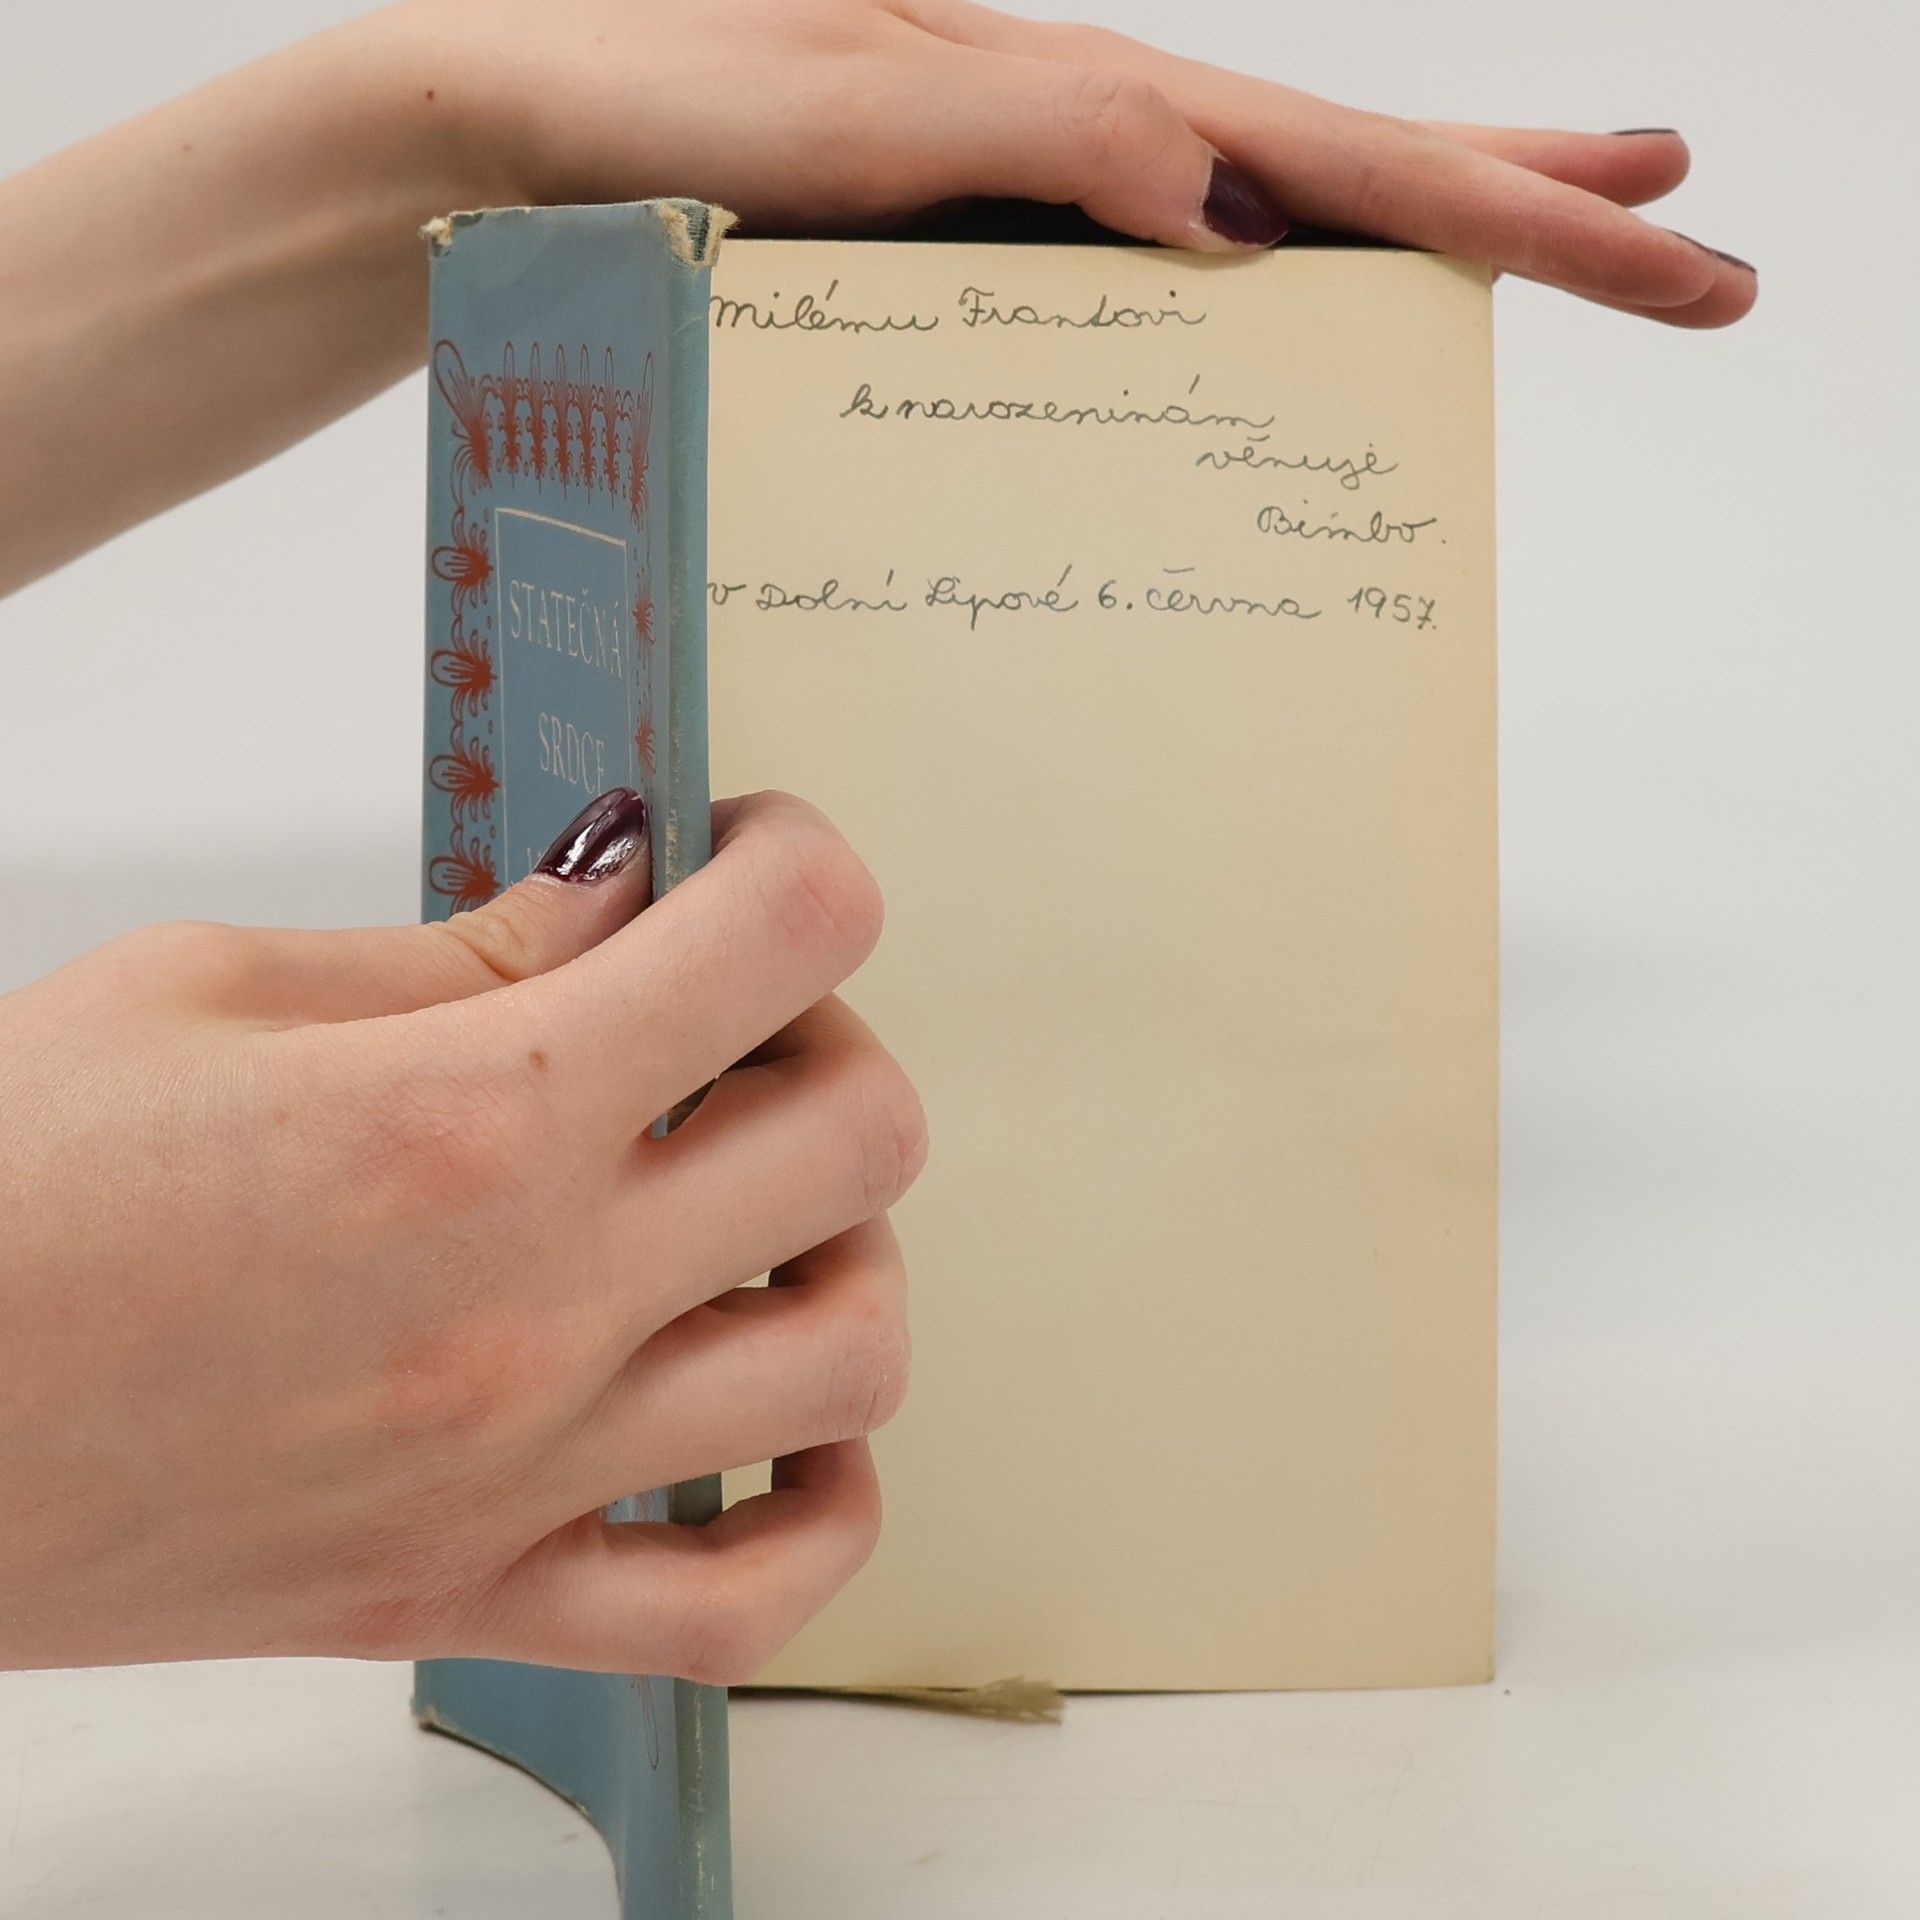 STATEČNÁ
SRDCE
Milému Frantovi
k narozeninám
věnuje
Bimbo.
v Dolní Lipové 6. června 1957.